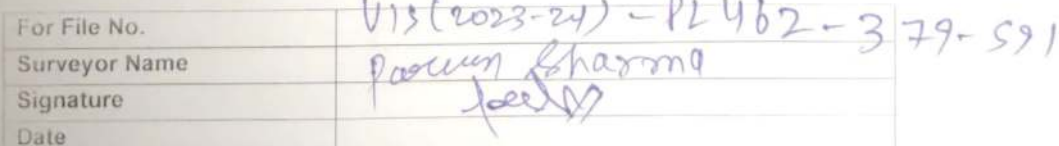 For File No. VIS(2023-24)-PL462-379-591
Surveyor Name Parveen Sharma
Signature
Date